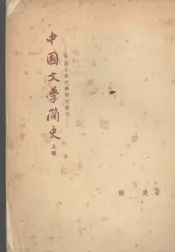 中國文學簡史 上卷
林庚著